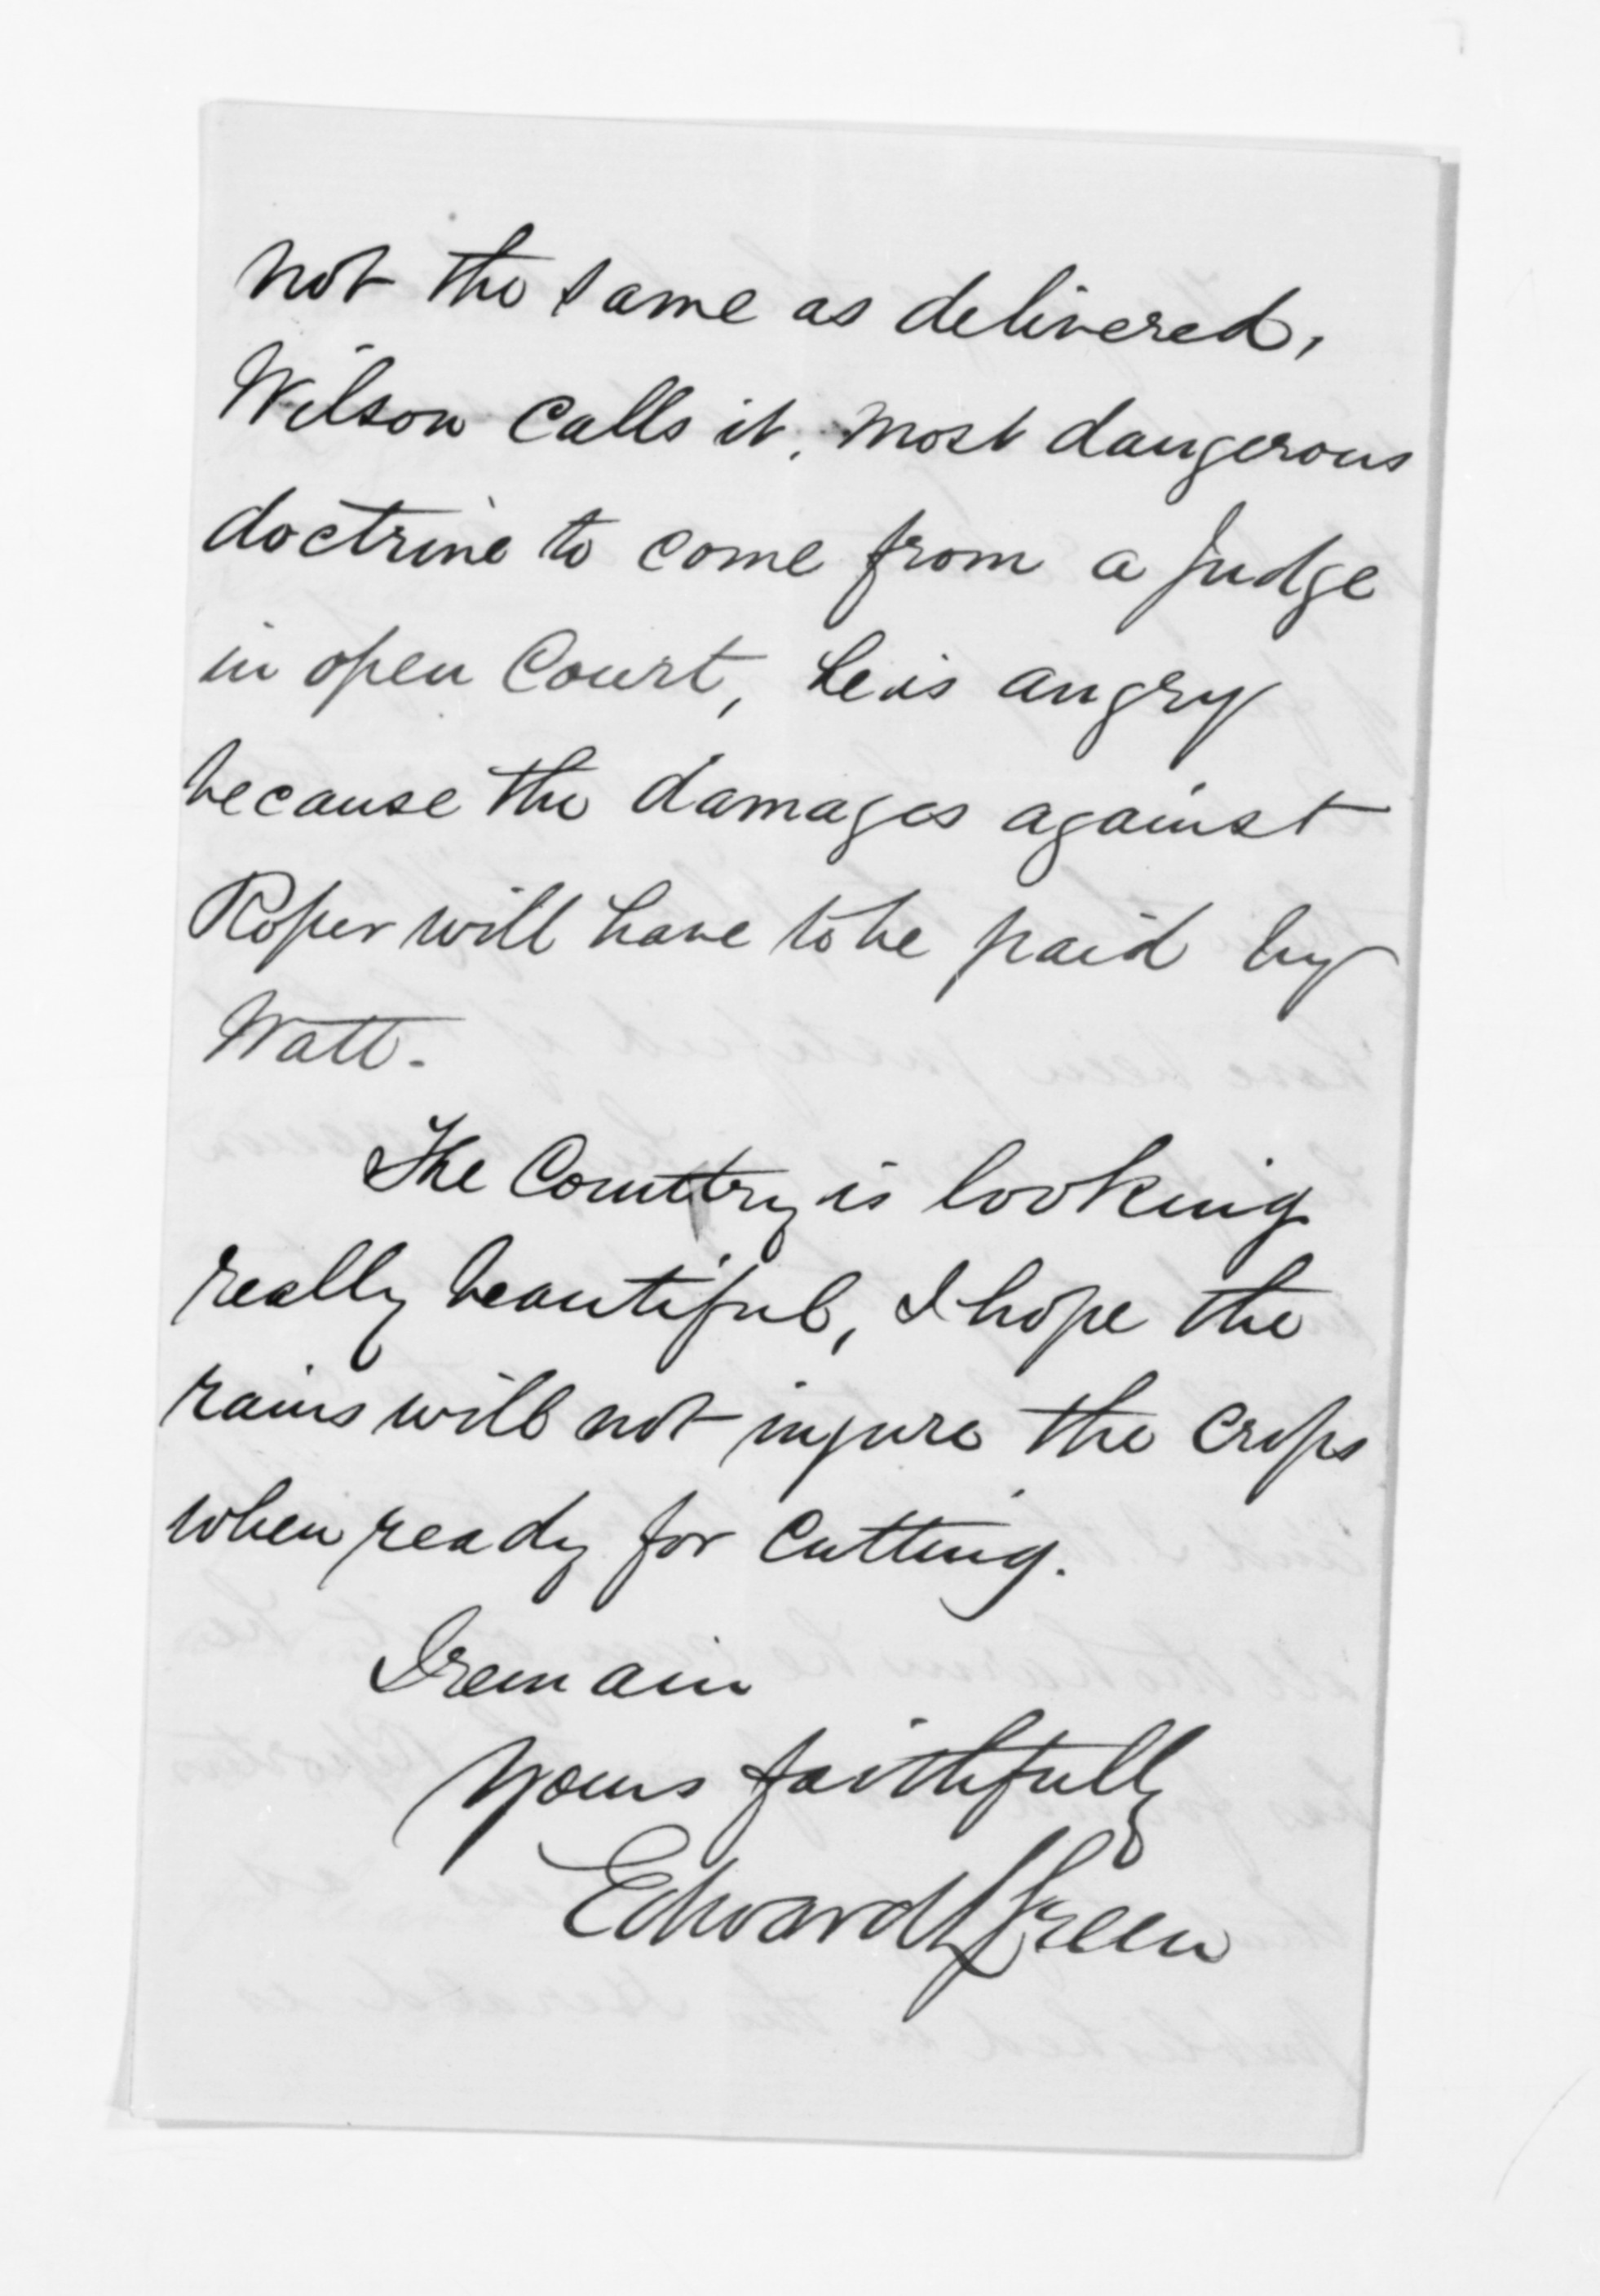 not the same as delivered,
Wilson calls it, most dangerous
doctrine to come from a Judge
in open Court, he is angry
because the damages against
Roper will have to be paid by
Watt.
The Country is looking
really beautiful, I hope the
rains will not injure the crops
when ready for cutting.
I remain
Yours faithfully
Edward L Green